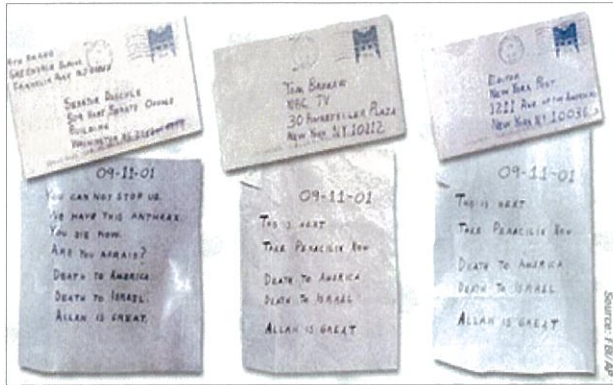 4TH GRADE
GREENDALE SCHOOL
FRANKLIN PARK NJ 08852
SENATOR DASCHLE
509 HART SENATE OFFICE
BUILDING
09-11-01
YOU CAN NOT STOP US.
WE HAVE THIS ANTHRAX.
YOU DIE NOW.
ARE YOU AFRAID?
DEATH TO AMERICA.
DEATH TO ISRAEL.
ALLAH IS GREAT.
TOM BROKAW
NBC TV
30 ROCKEFELLER PLAZA
NEW YORK NY 10112
09-11-01
THIS IS NEXT
TAKE PENACILIN NOW
DEATH TO AMERICA
DEATH TO ISRAEL
ALLAH IS GREAT
EDITOR
NEW YORK POST
1211 AVE. OF THE AMERICAS
NEW YORK NY 10036
09-11-01
THIS IS NEXT
TAKE PENACILIN NOW
DEATH TO AMERICA
DEATH TO ISRAEL
ALLAH IS GREAT
Source: FBI/AP